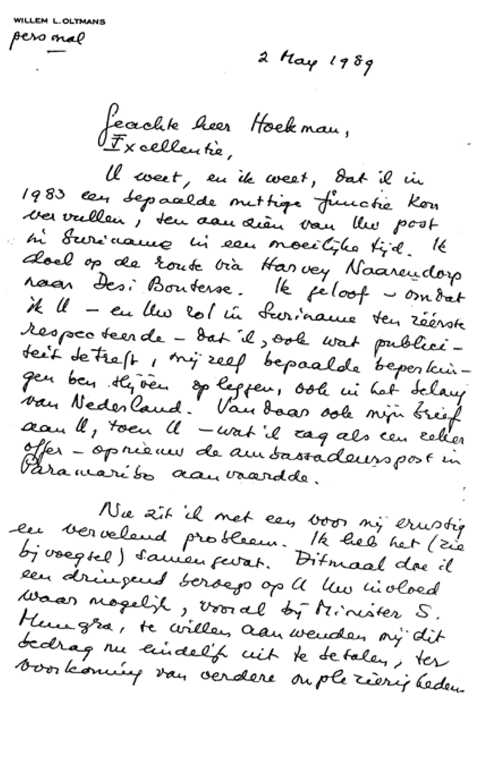 WILLEM L. OLTMANS
personal
2 May 1989
Geachte heer Hoekman,
Excellentie,
U weet, en ik weet, dat ik in
1983 een bepaalde nuttige functie kon
vervullen, ten aanzien van Uw post
in Suriname in een moeilijke tijd. Ik
doel op de route via Harvey Naarendorp
naar Desi Bouterse. Ik geloof – omdat
ik U – en Uw rol in Suriname ten zéérste
respecteerde – dat ik, ook wat publici-
teit betreft, mij zelf bepaalde beperkin-
gen ben blijven opleggen, ook in het belang
van Nederland. Vandaar ook mijn brief
aan U, toen U – wat ik zag als een zeker
offer – opnieuw de ambassadeurspost in
Paramaribo aanvaardde.
Nu zit ik met een voor mij ernstig
en vervelend probleem. Ik heb het (zie
bijvoegsel) samengevat. Ditmaal doe ik
een dringend beroep op U Uw invloed
waar mogelijk, vooral bij Minister S.
Mungra, te willen aanwenden mij dit
bedrag nu eindelijk uit te betalen, ter
voorkoming van verdere onplezierigheden.